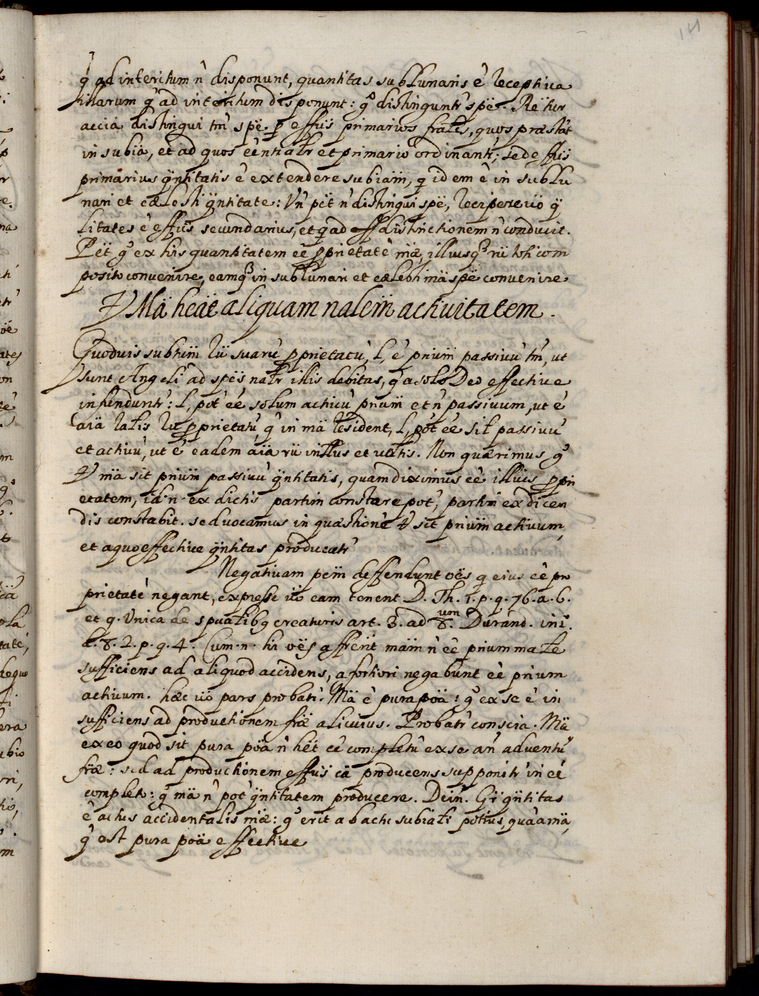 141
q̃ ad interitum ñ disponunt, quantitas sublunaris ẽ receptiua
illarum q̃ ad interitum disponunt: gº distinguntr̃ spẽ. Re
accia distingui tm̃ spẽ, p effüs primarios frãles, quos præstãt
in subia, et ad quos eẽntialr̃ et primario ordinantr̃; sed effüs
primarius q̃ntitatis ẽ extendere subiam, q̃ id em ẽ in sublu
nari et cælesti q̃ntitate: Vñ pẽt ñ distingui spẽ, recipere uõ q̃
litates ẽ effüs secundarius, et q̃ ad distinctionem ñ conducit.
Pẽt gº ex his quantitatem eẽ pprietatẽ mæ, illiusq̃ rũ toti com
posito conuenire, eamq̃ in sublunari et cælesti mã spẽ conuenire
V Mã heãt aliquam nalem actiuitatem.
Quoduis subtum suarũ pprietatũ, l, ẽ prium passiuũ tm̃, ut
sunt Angeli ad spẽs nalr̃ illis debitas, q̃ a solo Deo effectiue
infundunt̃: l, põt eẽ solum actiũ prium et ñ passiuum, ut ẽ
aĩa pprietatũ q̃ in mã resident, l, põt eẽ sil̃ passiuũ
et actiuũ, ut ẽ eadem aĩa et Non quærimus gº
V mã sit prium passiuũ q̃ntitatis, quam diximus eẽ illius ppri
etatem, id.n. ex dictis partim constare põt, partim ex dicen
dis constabit. sed uocamus in quæstionẽ V sit prium actiuum,
et a quo effectiue q̃ntitas producatr̃
Negatiuam pem deffendunt oẽs q̃ eius eẽ pro
prietatẽ negant, expresse uõ eam tenent D. Th. 1. p. q. 76. a. 6.
et q. Vnica de spualibq creaturis art. 3. ad 8.um Durand. in 1.
d. 8. 2. p. q. 4. Cum.n. hi oẽs afferẽt mãm ñ eẽ prium male
sufficiens ad aliquod accidens, a fortiori negabunt eẽ prium
actiuum. hæc uõ pars probatr̃. Mã ẽ pura põã: gº ex se ẽ in
sufficiens ad productionem fræ alicuius. Probatr̃ conseia. Mã
ex eo quod sit pura põã ñ hẽt eẽ completũ ex se añ aduentũ
fræ: sed ad productionem effüs cã producens supponitr̃ in eẽ
completo: gº mã ñ põt q̃ntitatem producere. Dein. q̃ntitas
ẽ actus accidentalis mæ: gº erit ab actu subiali potius, quã a mã,
q̃ est pura põã effectiue